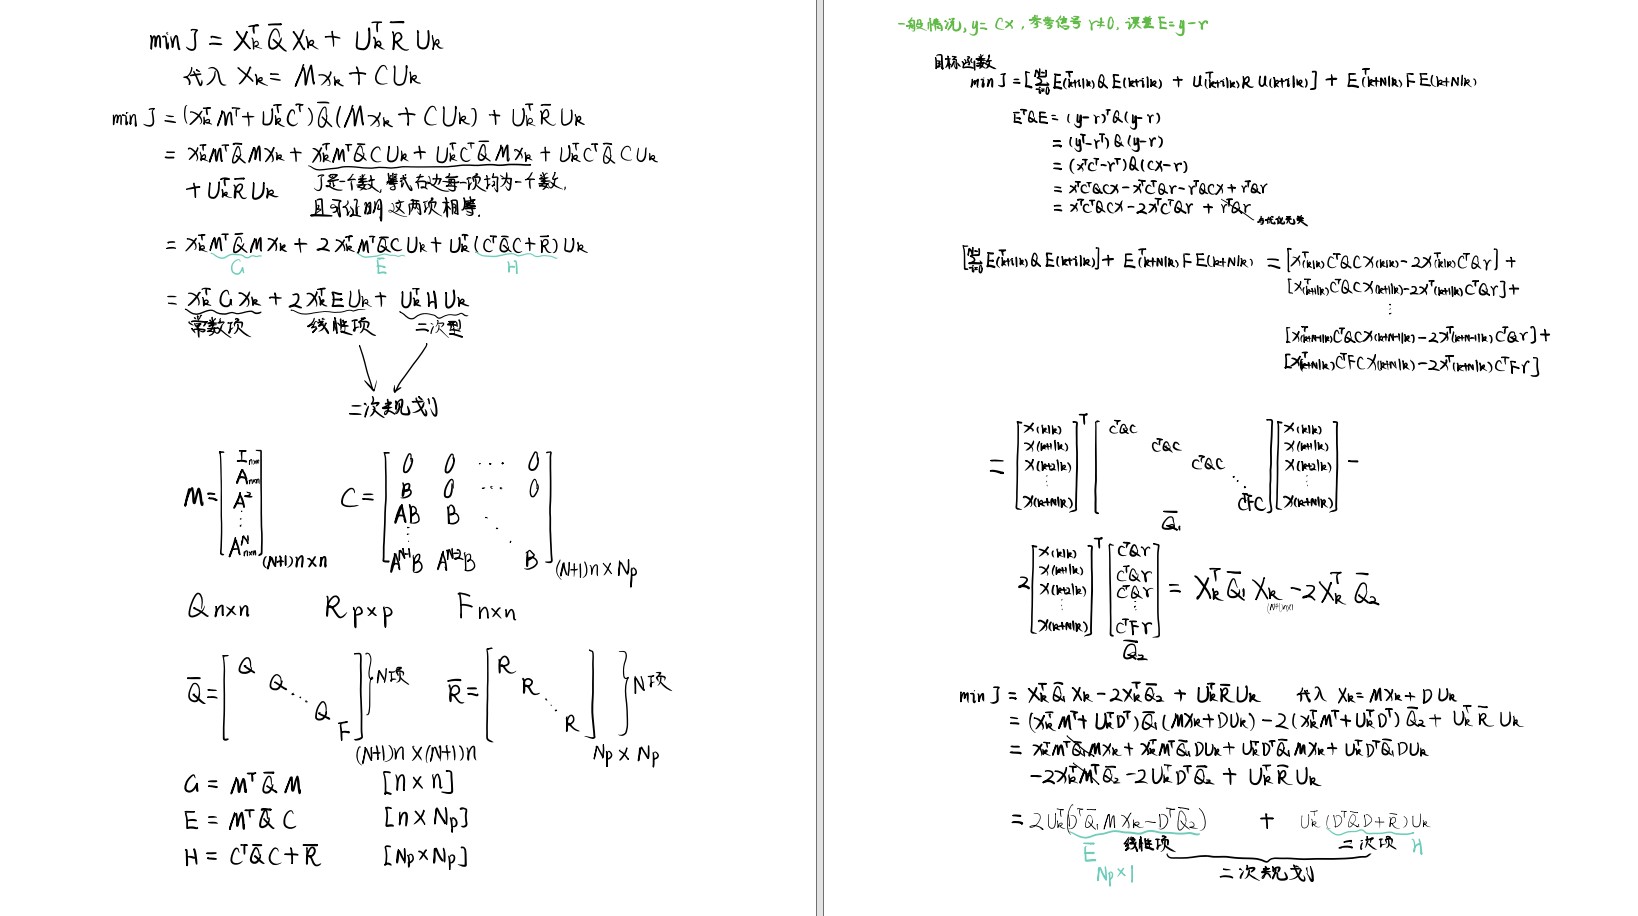 min J = X_k^T Q̄ X_k + U_k^T R̄ U_k
代入 X_k = M x_k + C U_k
min J = (x_k^T M^T + U_k^T C^T) Q̄ (M x_k + C U_k) + U_k^T R̄ U_k
= x_k^T M^T Q̄ M x_k + x_k^T M^T Q̄ C U_k + U_k^T C^T Q̄ M x_k + U_k^T C^T Q̄ C U_k
+ U_k^T R̄ U_k
J是一个数,等式右边每一项均为一个数,
且可证明 这两项相等.
= x_k^T M^T Q̄ M x_k + 2 x_k^T M^T Q̄ C U_k + U_k^T (C^T Q̄ C + R̄) U_k
G E H
= x_k^T G x_k + 2 x_k^T E U_k + U_k^T H U_k
常数项 线性项 二次型
二次规划
M = [ I_{n×n} A_{n×n} A^2 ⋮ A^N_{n×n} ] (N+1)n × n
C = [ 0 0 ⋯ 0
B 0 ⋯ 0
AB B ⋱
⋮ ⋱
A^{N-1}B A^{N-2}B B ] (N+1)n × Np
Q n×n R p×p F n×n
Q̄ = [ Q Q ⋱ Q F ] }N项 (N+1)n × (N+1)n
R̄ = [ R R ⋱ R ] }N项 Np × Np
G = M^T Q̄ M [n × n]
E = M^T Q̄ C [n × Np]
H = C^T Q̄ C + R̄ [Np × Np]
一般情况, y = Cx, 参考信号 r≠0, 误差 E = y - r
目标函数
min J = [∑_{i=0}^{N-1} E^T(k+i|k) Q E(k+i|k) + U^T(k+i|k) R U(k+i|k)] + E^T(k+N|k) F E(k+N|k)
E^T Q E = (y-r)^T Q (y-r)
= (y^T - r^T) Q (y-r)
= (x^T C^T - r^T) Q (Cx - r)
= x^T C^T Q C x - x^T C^T Q r - r^T Q C x + r^T Q r
= x^T C^T Q C x - 2 x^T C^T Q r + r^T Q r
与优化无关
[∑_{i=0}^{N-1} E^T(k+i|k) Q E(k+i|k)] + E^T(k+N|k) F E(k+N|k) = [x^T(k|k) C^T Q C x(k|k) - 2 x^T(k|k) C^T Q r] +
[x^T(k+1|k) C^T Q C x(k+1|k) - 2 x^T(k+1|k) C^T Q r] +
⋮
[x^T(k+N-1|k) C^T Q C x(k+N-1|k) - 2 x^T(k+N-1|k) C^T Q r] +
[x^T(k+N|k) C^T F C x(k+N|k) - 2 x^T(k+N|k) C^T F r]
= [ x(k|k) x(k+1|k) x(k+2|k) ⋮ x(k+N|k) ]^T [ C^T Q C C^T Q C C^T Q C ⋱ C^T F C ] [ x(k|k) x(k+1|k) x(k+2|k) ⋮ x(k+N|k) ] -
Q̄_1
2 [ x(k|k) x(k+1|k) x(k+2|k) ⋮ x(k+N|k) ]^T [ C^T Q r C^T Q r C^T Q r ⋮ C^T F r ] = X_k^T Q̄_1 X_k - 2 X_k^T Q̄_2
(N+1)n×1
Q̄_2
min J = X_k^T Q̄_1 X_k - 2 X_k^T Q̄_2 + U_k^T R̄ U_k 代入 X_k = M x_k + D U_k
= (x_k^T M^T + U_k^T D^T) Q̄_1 (M x_k + D U_k) - 2 (x_k^T M^T + U_k^T D^T) Q̄_2 + U_k^T R̄ U_k
= x_k^T M^T Q̄_1 M x_k + x_k^T M^T Q̄_1 D U_k + U_k^T D^T Q̄_1 M x_k + U_k^T D^T Q̄_1 D U_k
- 2 x_k^T M^T Q̄_2 - 2 U_k^T D^T Q̄_2 + U_k^T R̄ U_k
= 2 U_k^T (D^T Q̄_1 M x_k - D^T Q̄_2) + U_k^T (D^T Q̄ D + R̄) U_k
Ē 线性项 二次项 H
Np×1 二次规划